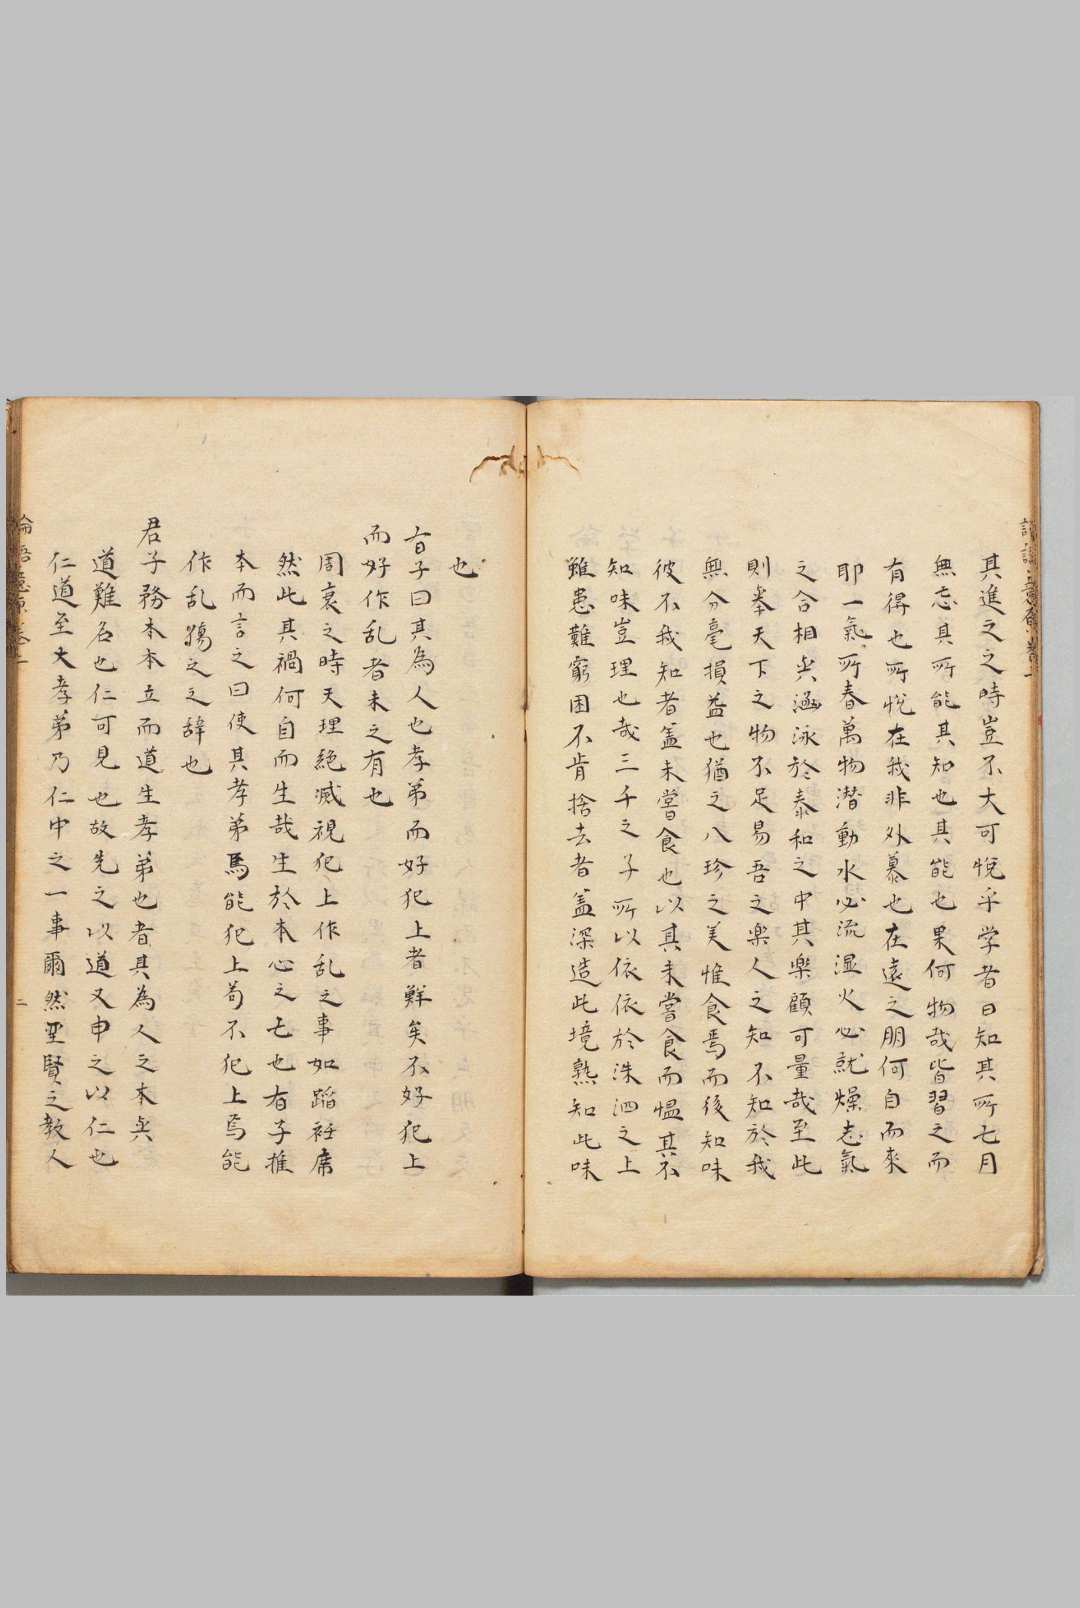 其進之之時豈不大可悅乎学者日知其所亡月
無忘其所能其知也其能也果何物哉皆習之而
有得也所悅在我非外慕也在遠之朋何自而來
耶一氣所春萬物潜動水必流湿火必就燥志氣
之合相与涵泳於泰和之中其楽顧可量哉至此
則举天下之物不足易吾之楽人之知不知於我
無分毫損益也猶之八珍之美惟食焉而後知味
彼不我知者盖未嘗食也以其未嘗食而愠其不
知味豈理也哉三千之子所以依依於洙泗之上
雖患難窮困不肯捨去者盖深造此境熟知此味
也
有子曰其為人也孝弟而好犯上者鮮矣不好犯上
而好作乱者未之有也
周衰之時天理絶滅視犯上作乱之事如蹈衽席
然此其禍何自而生哉生於本心之亡也有子推
本而言之曰使其孝弟焉能犯上苟不犯上焉能
作乱之之辞也
君子務本本立而道生孝弟也者其為人之本与
道難名也仁可見也故先之以道又申之以仁也
仁道至大孝弟乃仁中之一事爾然聖賢之教人
二